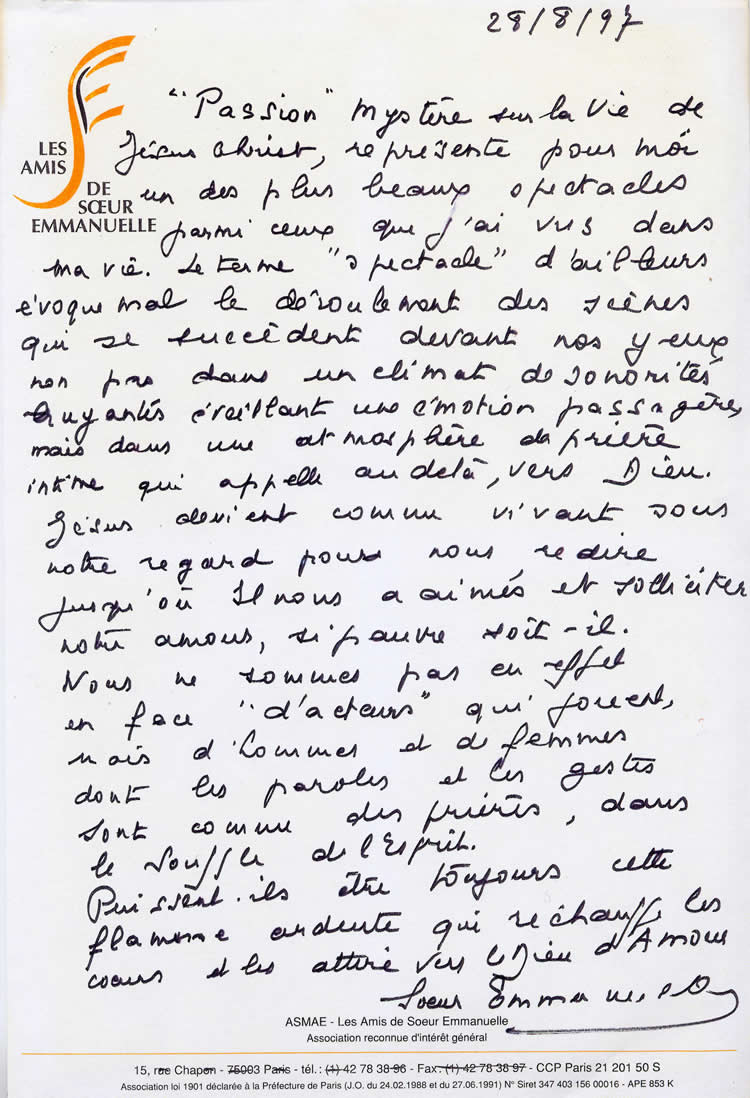 28/8/97
"Passion" mystère sur la vie de
Jésus Christ, représente pour moi
LES
AMIS
DE
SŒUR
EMMANUELLE
un des plus beaux spectacles
parmi ceux que j'ai vus dans
ma vie. Le terme "spectacle" d'ailleurs
évoque mal le déroulement des scènes
qui se succèdent devant nos yeux
non pas dans un climat de sonorités
bruyantes éveillant une émotion passagère,
mais dans une atmosphère de prière
intime qui appelle au delà, vers Dieu.
Jésus devient comme vivant sous
notre regard pour nous redire
jusqu'où Il nous a aimés et solliciter
notre amour, si pauvre soit-il.
Nous ne sommes pas en effet
en face "d'acteurs" qui jouent,
mais d'hommes et de femmes
dont les paroles et les gestes
sont comme des prières, dans
le souffle de l'Esprit.
Puissent-ils être toujours cette
flamme ardente qui réchauffe les
cœurs et les attire vers le Dieu d'Amour
Sœur Emmanuelle
ASMAE - Les Amis de Soeur Emmanuelle
Association reconnue d'intérêt général
15, rue Chapon - 75003 Paris - tél.: (1) 42 78 38 96 - Fax: (1) 42 78 38 97 - CCP Paris 21 201 50 S
Association loi 1901 déclarée à la Préfecture de Paris (J.O. du 24.02.1988 et du 27.06.1991) N° Siret 347 403 156 00016 - APE 853 K